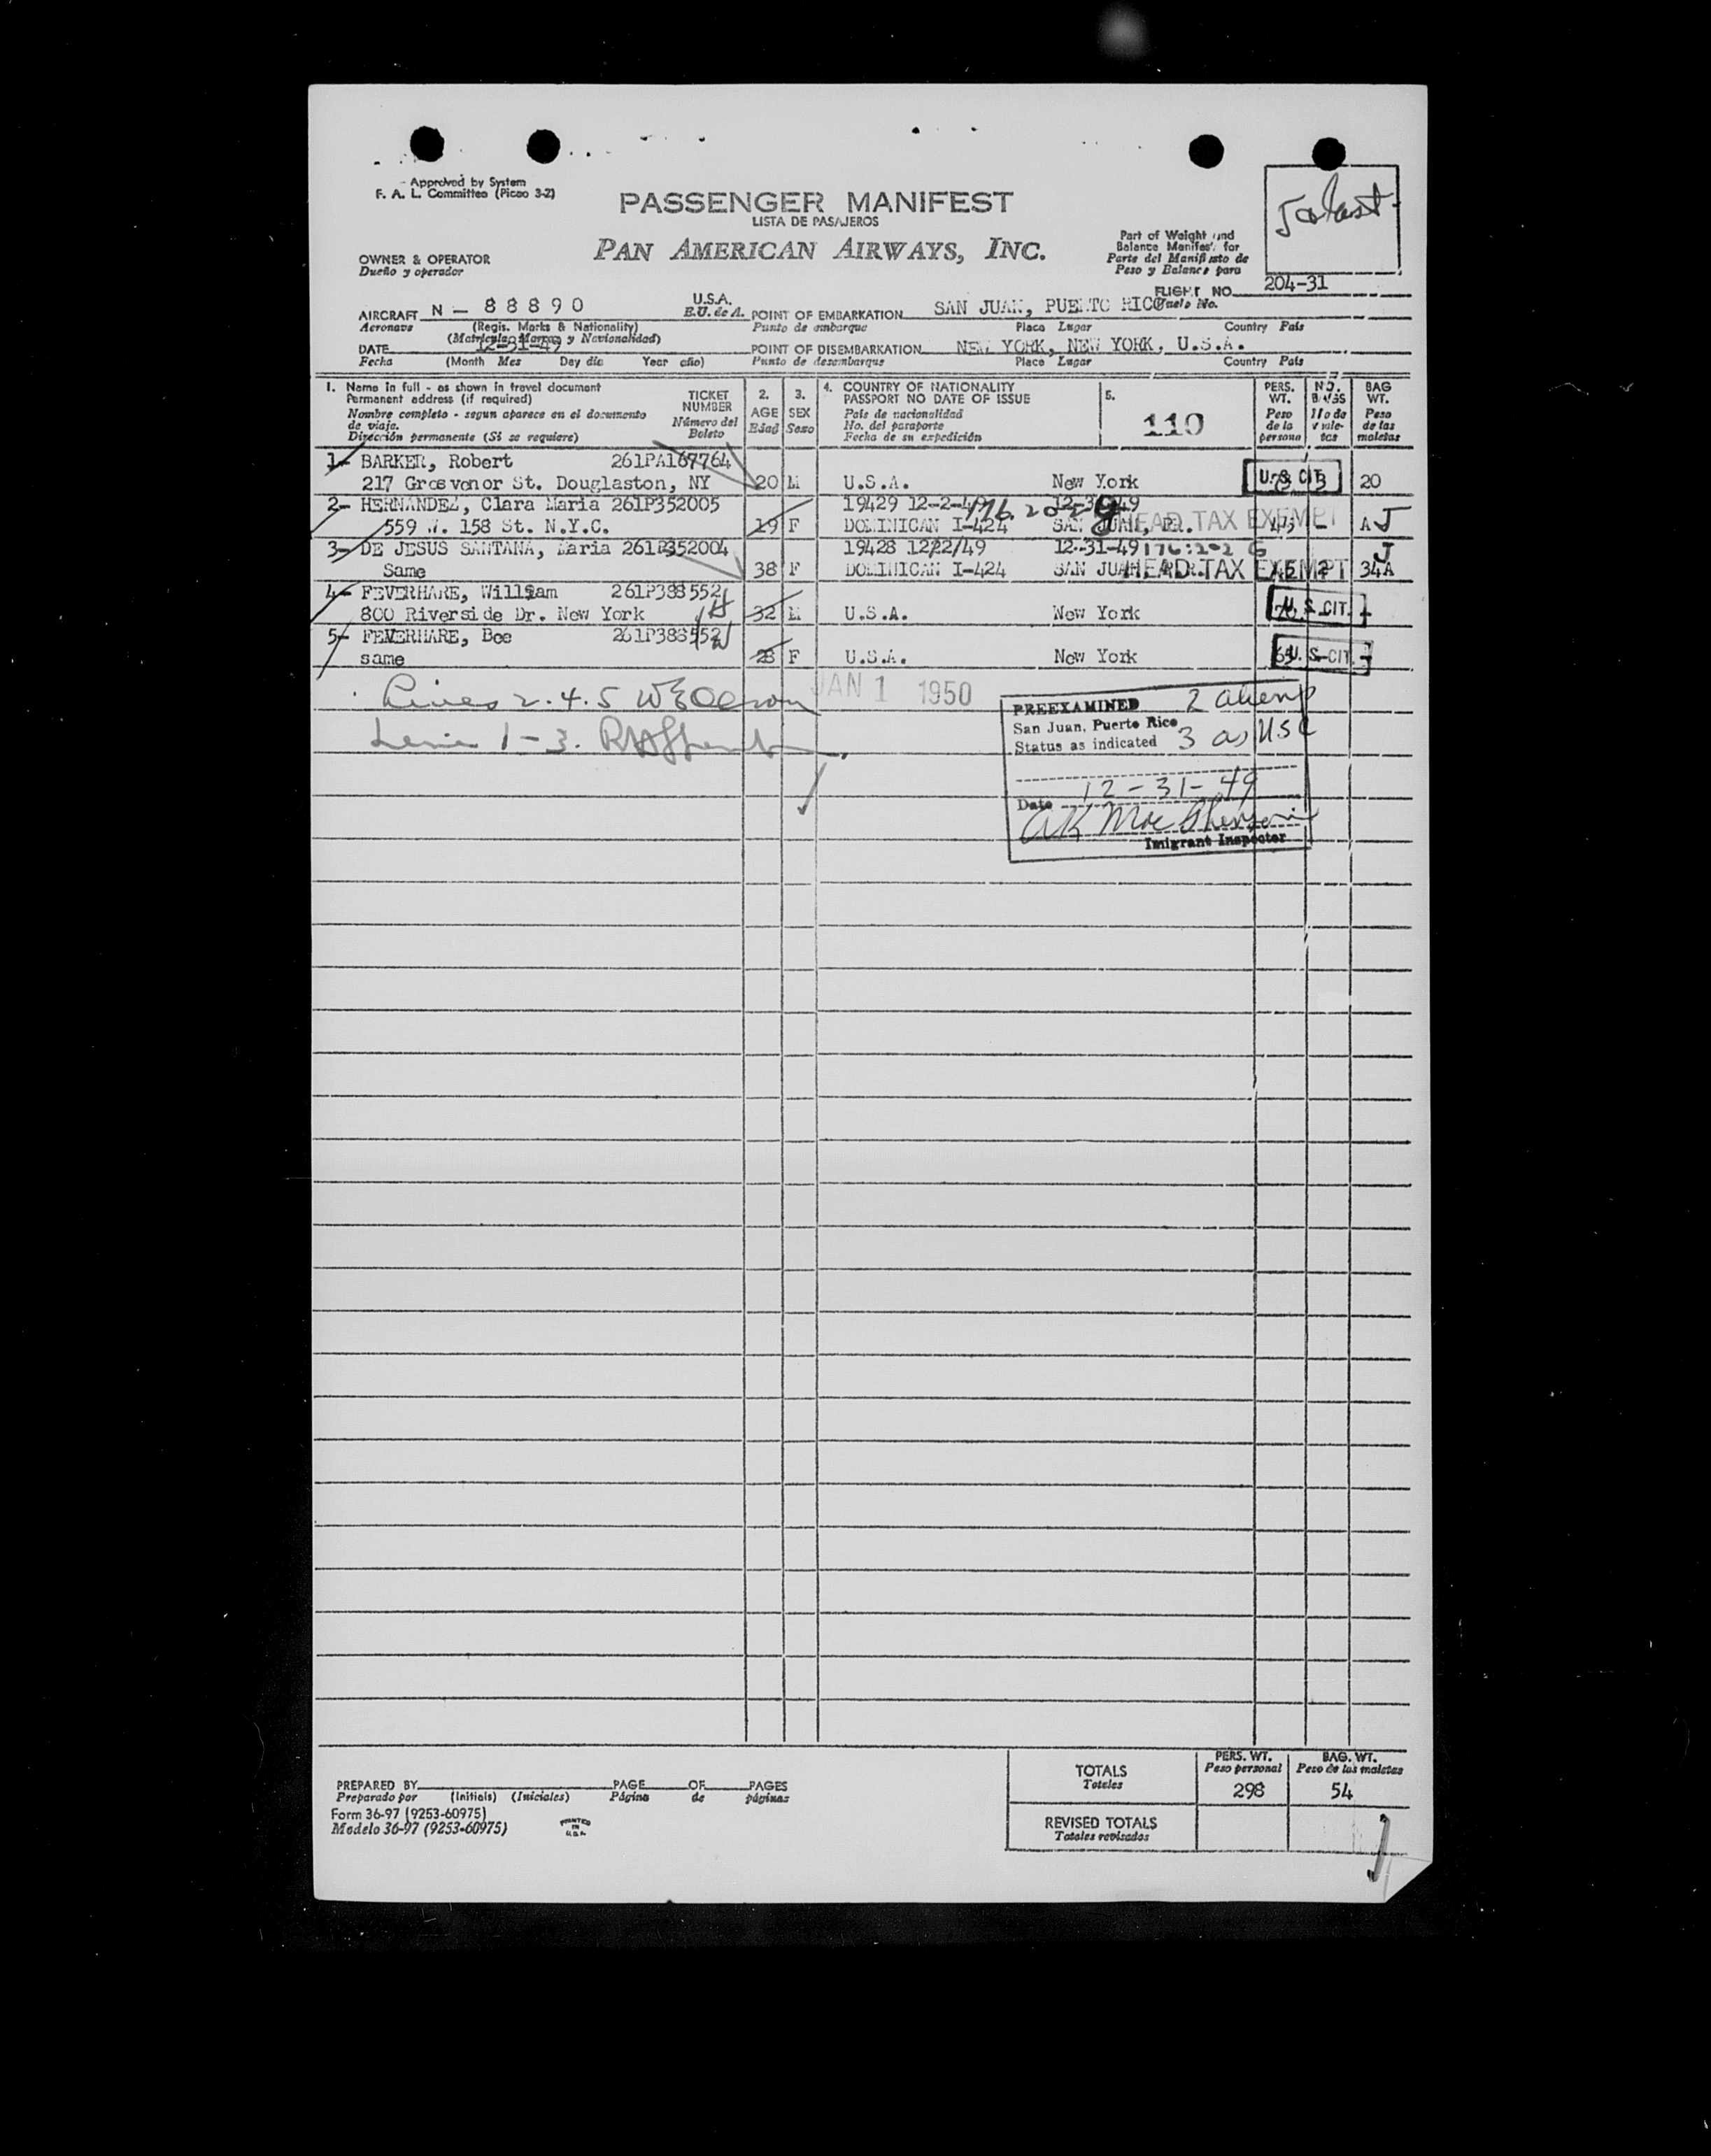 Approved by System
F. A. L. Committee (Picao 3-2)
PASSENGER MANIFEST
LISTA DE PASAJEROS
PAN AMERICAN AIRWAYS, INC.
OWNER & OPERATOR
Dueño y operador
Part of Weight and
Balance Manifest for
Parte del Manifiesto de
Peso y Balance para
FLIGHT NO. 204-31
Vuelo No.
AIRCRAFT N - 88890 U.S.A.
Aeronave (Regis. Marks & Nationality) E.U. de A.
(Matricula, Marcas y Nacionalidad)
POINT OF EMBARKATION SAN JUAN, PUERTO RICO
Punto de embarque Place Lugar Country País
DATE 12-31-49
Fecha (Month Mes Day día Year año)
POINT OF DISEMBARKATION NEW YORK, NEW YORK, U.S.A.
Punto de desembarque Place Lugar Country País
1. Name in full - as shown in travel document
Permanent address (if required)
Nombre completo - segun aparece en el documento
de viaje.
Dirección permanente (Si se requiere)
TICKET
NUMBER
Número del
Boleto
2.
AGE
Edad
3.
SEX
Sexo
4. COUNTRY OF NATIONALITY
PASSPORT NO DATE OF ISSUE
País de nacionalidad
No. del pasaporte
Fecha de su expedición
5.
110
PERS.
WT.
Peso
de la
persona
NO.
BAGS
No de
vale-
tas
BAG
WT.
Peso
de las
maletas
1- BARKER, Robert 261PA167764
217 Grosvenor St. Douglaston, NY 20 M U.S.A. New York U.S. CIT. 20
2- HERNANDEZ, Clara Maria 261P352005 19429 12-2-49 12-31-49
559 W. 158 St. N.Y.C. 19 F DOMINICAN I-424 SAN JUAN, P.R. HEAD TAX EXEMPT A J
3- DE JESUS SANTANA, Maria 261P352004 19428 12/22/49 12-31-49 J
Same 38 F DOMINICAN I-424 SAN JUAN HEAD TAX EXEMPT 34A
4- FEVERHARE, William 261P388552
800 Riverside Dr. New York 32 M U.S.A. New York U.S. CIT.
5- FEVERHARE, Bee 261P388552
same 28 F U.S.A. New York U.S. CIT.
Lines 2.4.5
JAN 1 1950
Line 1-3.
PREEXAMINED 2 aliens
San Juan, Puerto Rico
Status as indicated 3 as USC
Date 12-31-49
Imigrant Inspector
TOTALS
Totales
PERS. WT.
Peso personal
298
BAG. WT.
Peso de las maletas
54
REVISED TOTALS
Totales revisados
PREPARED BY PAGE OF PAGES
Preparado por (Initials) (Iniciales) Página de páginas
Form 36-97 (9253-60975)
Modelo 36-97 (9253-60975)
PRINTED
IN
U.S.A.